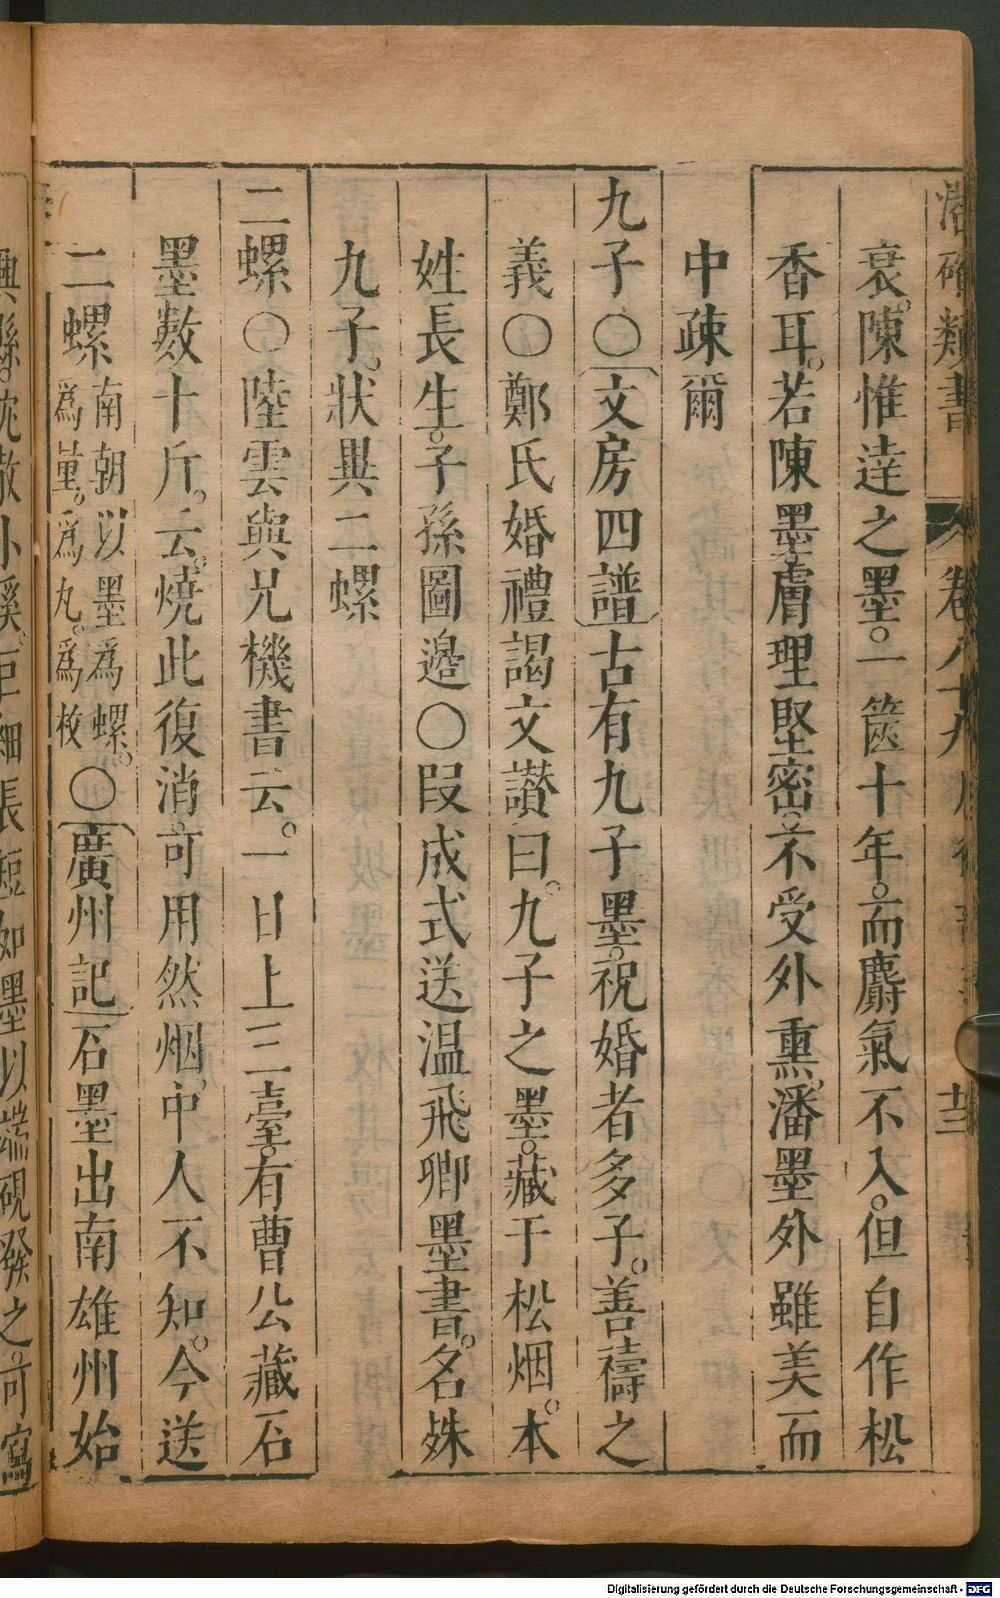 潛確類書 卷八十九
衰。陳惟逹之墨。一篋十年。而麝氣不入。但自作松
香耳。若陳墨膚理堅密。不受外熏。潘墨外雖美而
中疎爾
九子〇文房四譜古有九子墨。祝婚者多子。善禱之
義〇鄭氏婚禮謁文讃曰。九子之墨。藏于松烟。本
姓長生。子孫圖邉〇段成式送温飛卿墨書。名姝
九子。狀異二螺
二螺〇陸雲與兄機書云。一日上三臺。有曹公藏石
墨數十斤。云。燒此復消。可用然烟。中人不知。今送
二螺南朝以墨爲螺。爲量。爲丸。爲枚〇廣州記石墨出南雄州始
興縣。小溪。巨細長短如墨以端硯發之。可寫
Digitalisierung gefördert durch die Deutsche Forschungsgemeinschaft - DFG